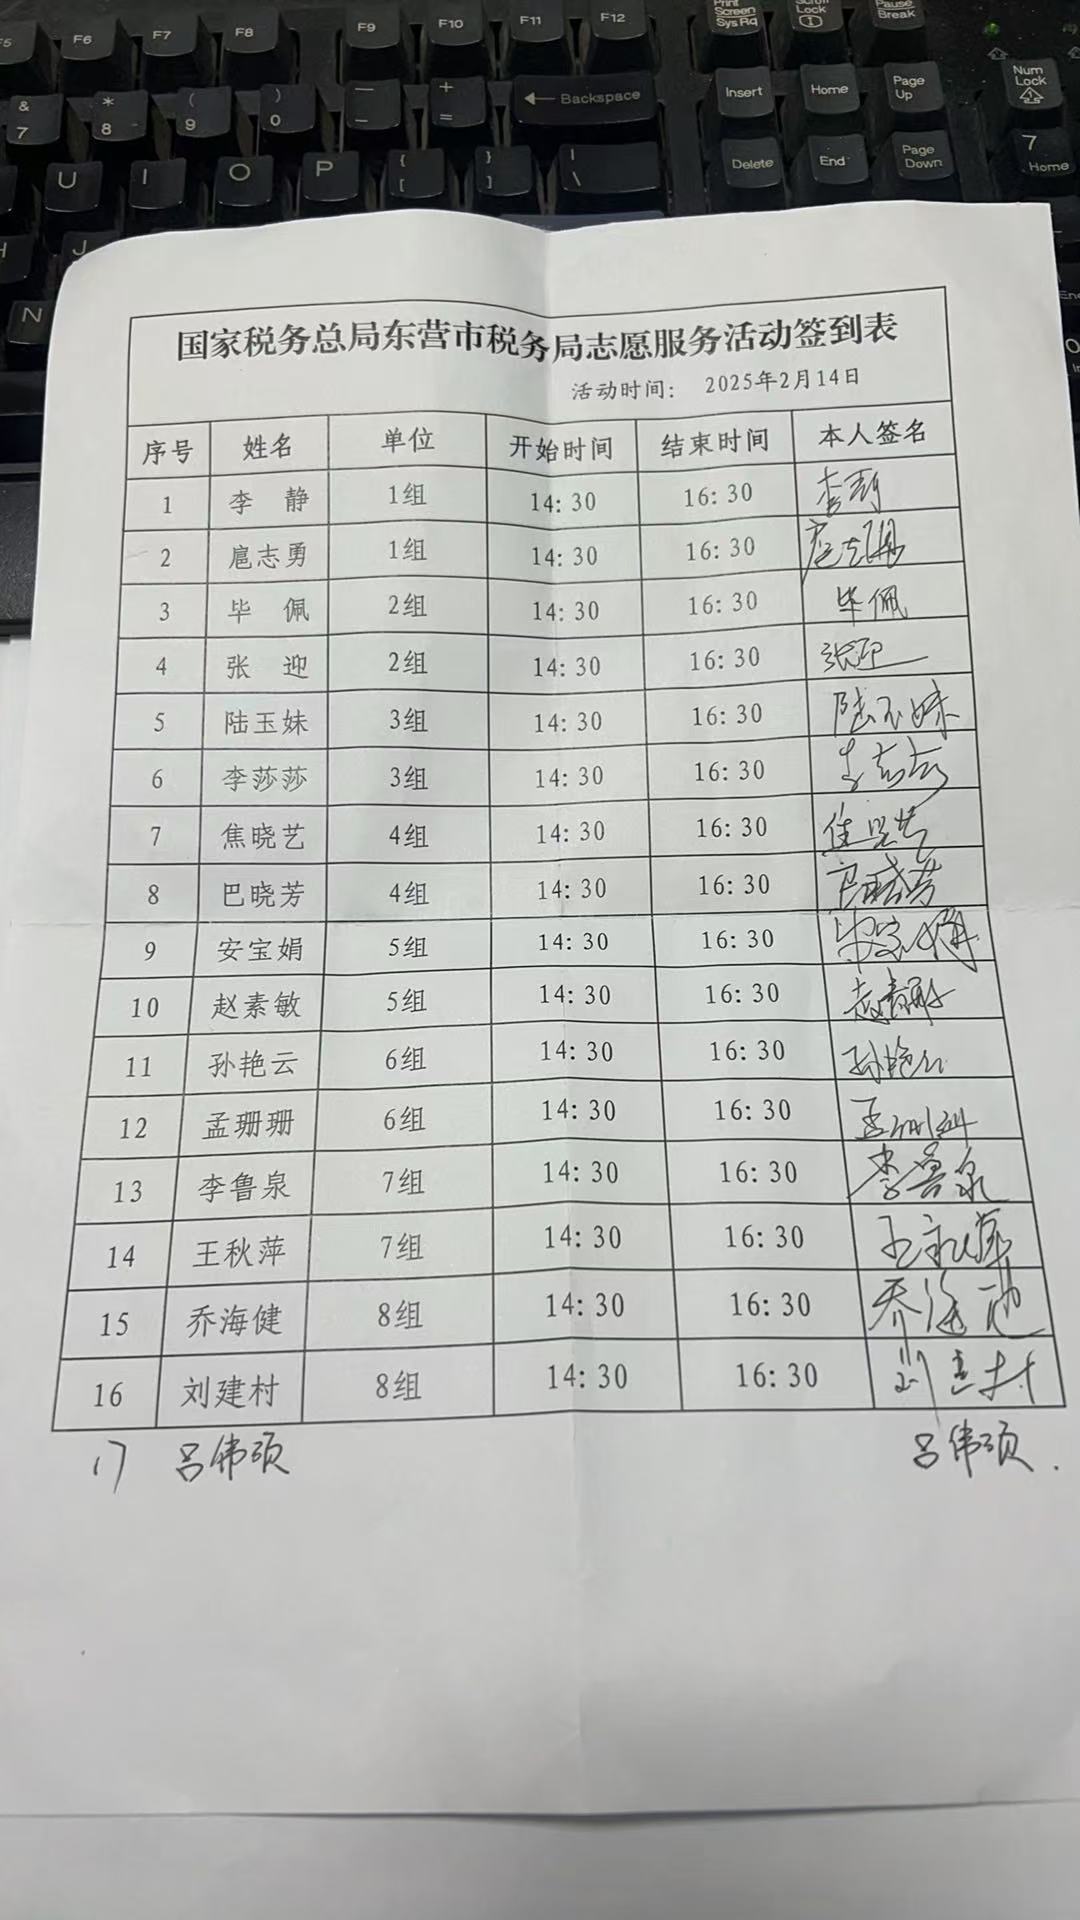 F5 F6 F7 F8 F9 F10 F11 F12 Print Screen Sys Rq Scroll Lock Pause Break
& 7 * 8 ( 9 ) 0 — - + = ← Backspace Insert Home Page Up Num Lock
U I O P { [ } ] | \ Delete End Page Down 7 Home
H J
N
国家税务总局东营市税务局志愿服务活动签到表
活动时间： 2025年2月14日
序号 姓名 单位 开始时间 结束时间 本人签名
1 李 静 1组 14:30 16:30 李静
2 扈志勇 1组 14:30 16:30 扈志勇
3 毕 佩 2组 14:30 16:30 毕佩
4 张 迎 2组 14:30 16:30 张迎
5 陆玉妹 3组 14:30 16:30 陆玉妹
6 李莎莎 3组 14:30 16:30 李莎莎
7 焦晓艺 4组 14:30 16:30 焦晓艺
8 巴晓芳 4组 14:30 16:30 巴晓芳
9 安宝娟 5组 14:30 16:30
10 赵素敏 5组 14:30 16:30 赵素敏
11 孙艳云 6组 14:30 16:30 孙艳云
12 孟珊珊 6组 14:30 16:30 孟珊珊
13 李鲁泉 7组 14:30 16:30 李鲁泉
14 王秋萍 7组 14:30 16:30 王秋萍
15 乔海健 8组 14:30 16:30 乔海健
16 刘建村 8组 14:30 16:30 刘建村
17 吕伟硕 吕伟硕.